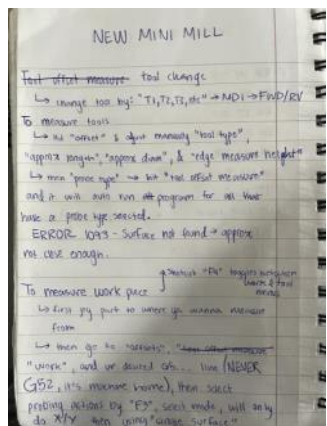 NEW MINI MILL
Tool offset measure tool change
↳ change tool by: "T1, T2, T3, etc" → MDI → FWD/RV
To measure tools
↳ hit "offset" & adjust manually "tool type",
"approx length", "approx diam", & "edge measure height"
↳ then "probe type" → hit "tool offset measure"
and it will auto run program for all that
have a probe type selected.
ERROR 1093 - Surface not found → approx
not close enough.
shortcut "F4" toggles between
work & tool
To measure work piece
↳ first jog part to where ya wanna measure
from
↳ then go to "offsets",
"work", and ur desired G5... line (NEVER
G52, it's machine home), then select
probing actions by "F3", select mode, will only
do X/Y when using "single surface"